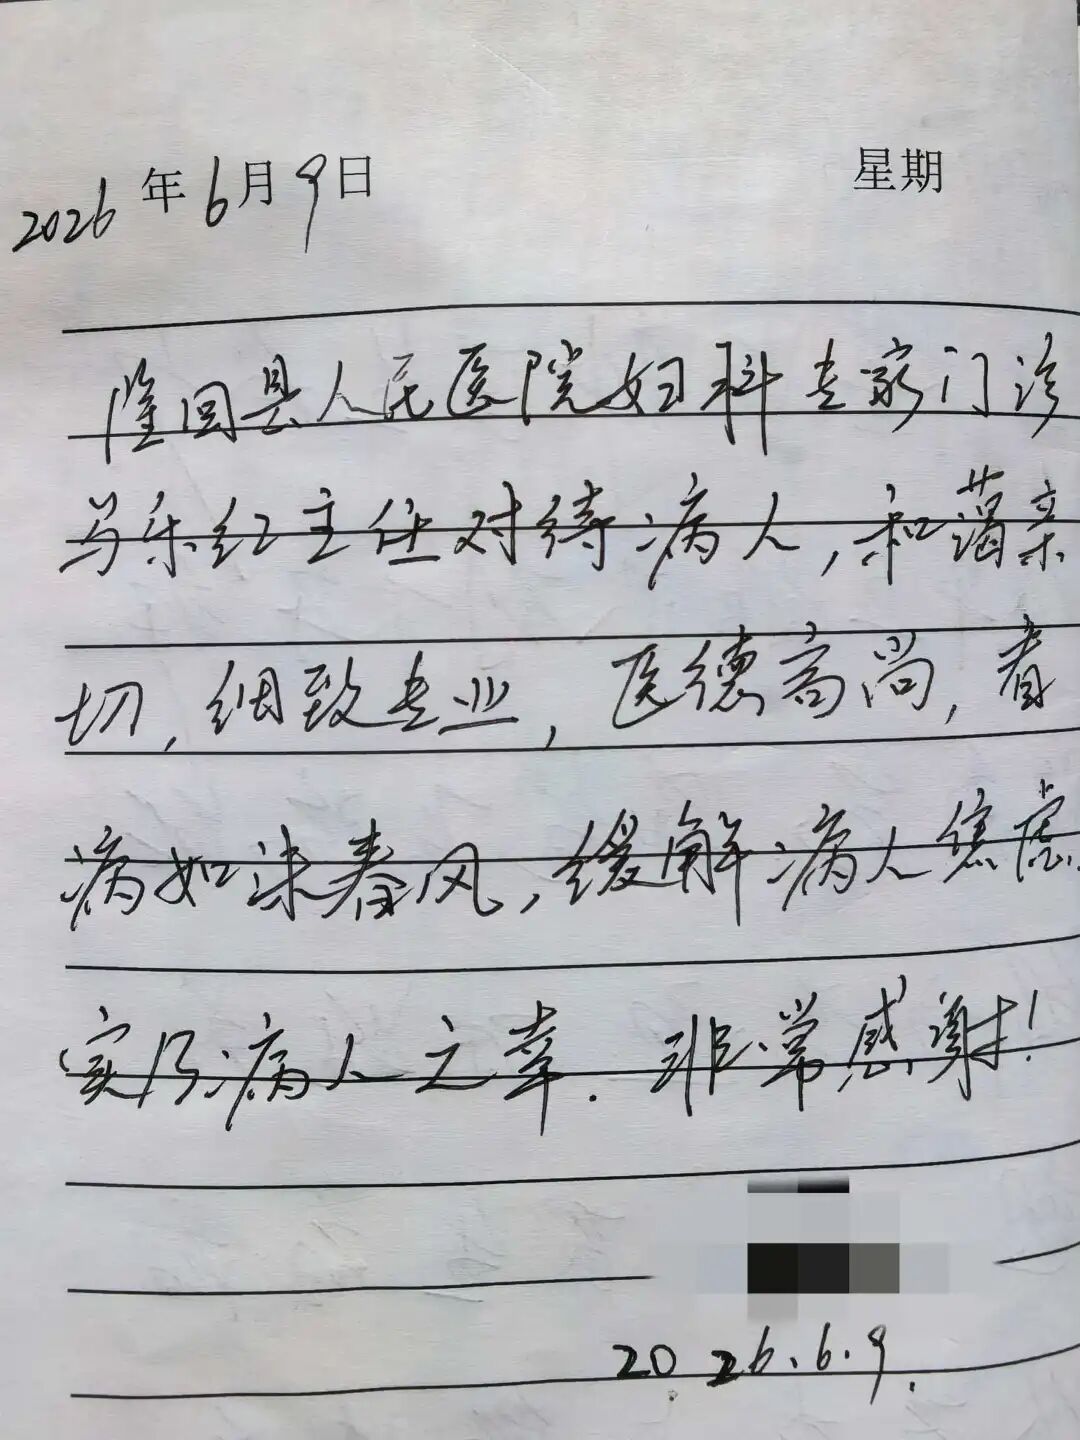 2026年6月9日 星期
隆回县人民医院妇科专家门诊
马乐红主任对待病人,和蔼亲
切,细致专业,医德高尚,看
病如沐春风,缓解病人焦虑.
实乃病人之幸.非常感谢!
2026.6.9.